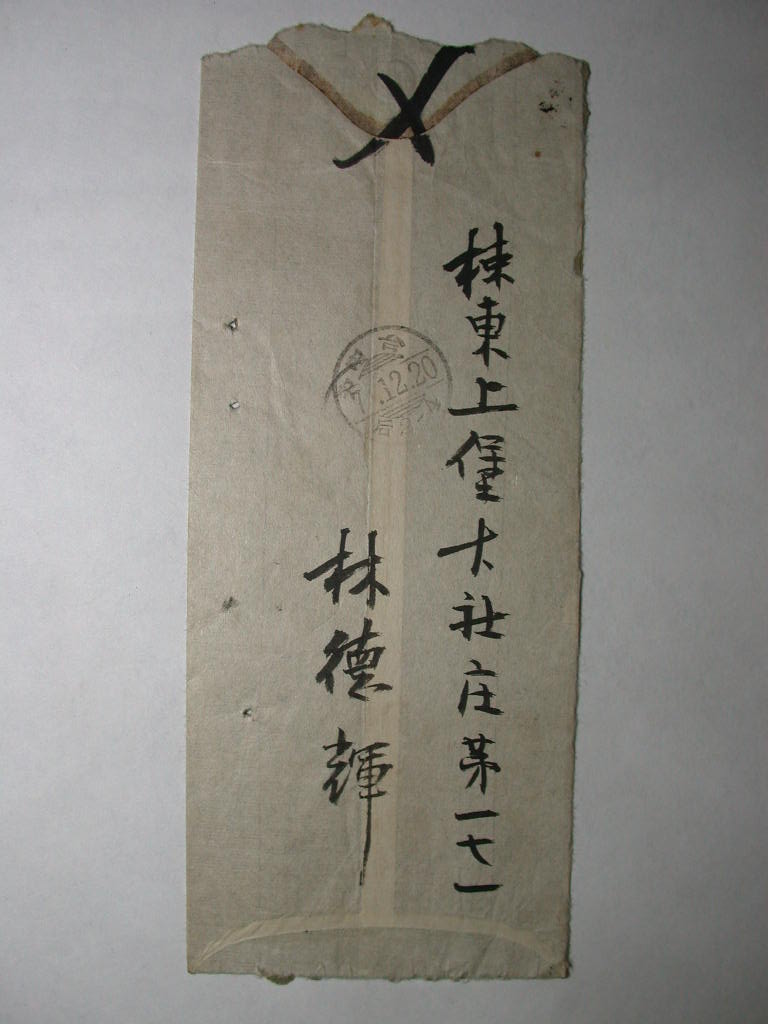 揀東上堡大社庄第一七一
林德輝
台
.12.20